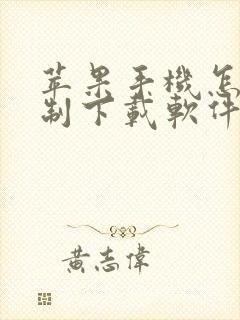 苹果手機怎
制下載軟件
黃志偉